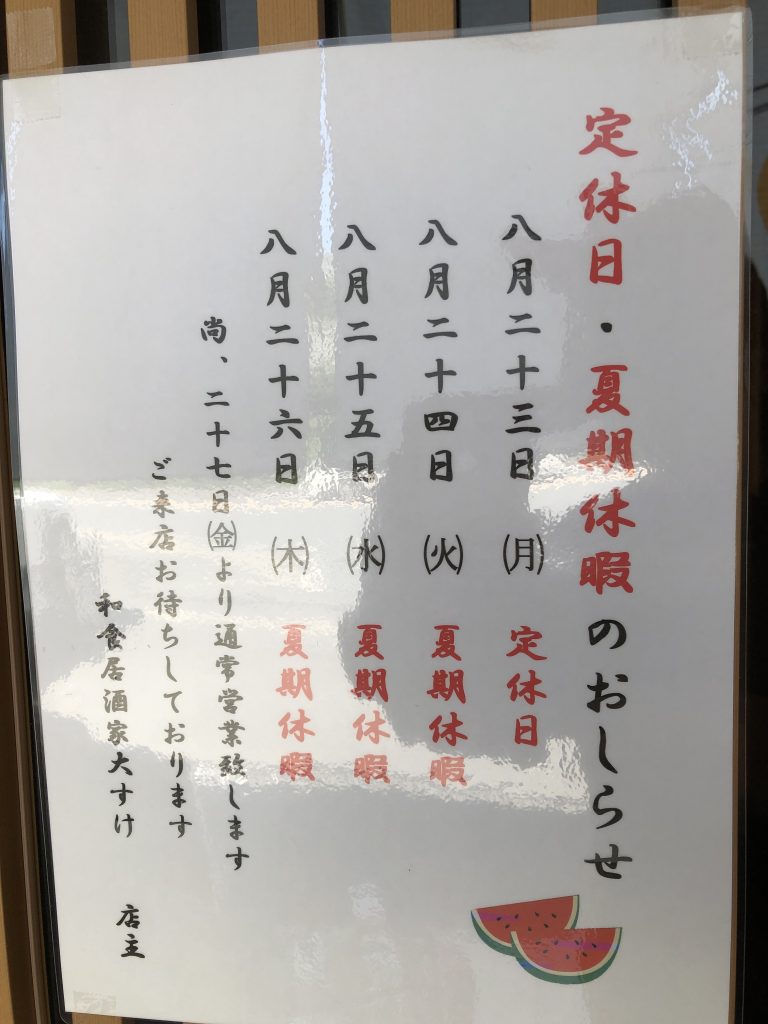 定休日・夏期休暇のおしらせ
八月二十三日 ㈪ 定休日
八月二十四日 ㈫ 夏期休暇
八月二十五日 ㈬ 夏期休暇
八月二十六日 ㈭ 夏期休暇
尚、二十七日㈮より通常営業致します
ご来店お待ちしております
和食居酒家大すけ 店主